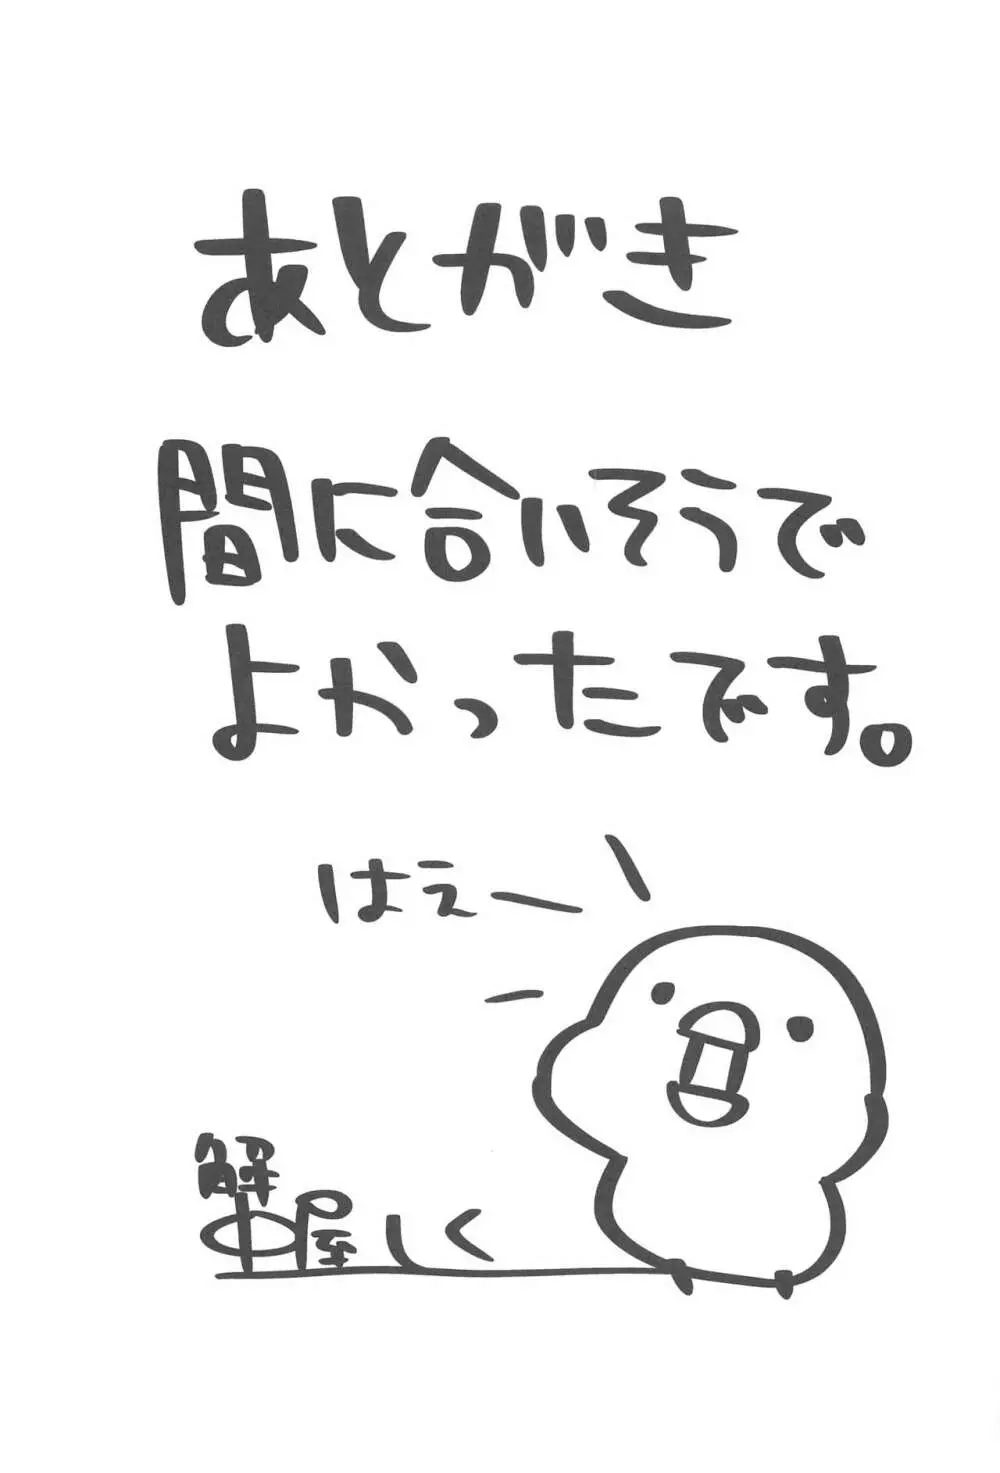 あとがき
間に合いそうで
よかったです。
はぇー
解
中屋しく